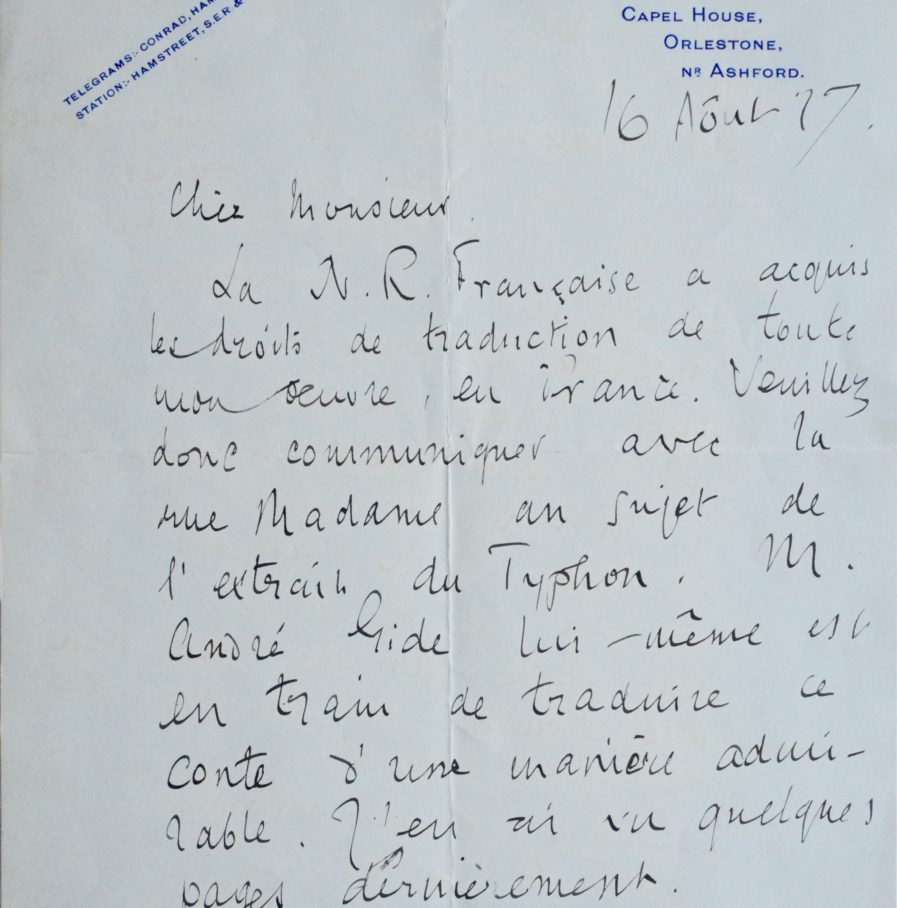 TELEGRAMS:- CONRAD,
STATION:- HAMSTREET, S.E.R. &
CAPEL HOUSE,
ORLESTONE,
NR ASHFORD.
16 Août 17.
Cher Monsieur.
La N. R. Française a acquis
les droits de traduction de toute
mon œuvre, en France. Veuillez
donc communiquer avec la
rue Madame au sujet de
l'extrait du Typhon. M.
André Gide lui-même est
en train de traduire ce
conte d'une manière admi-
rable. J'en ai vu quelques
pages dernièrement.